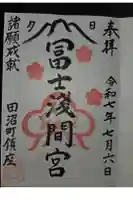 奉拝
日
月
令和七年七月六日
冨士浅間宮
諸願成就
田沼町鎮座